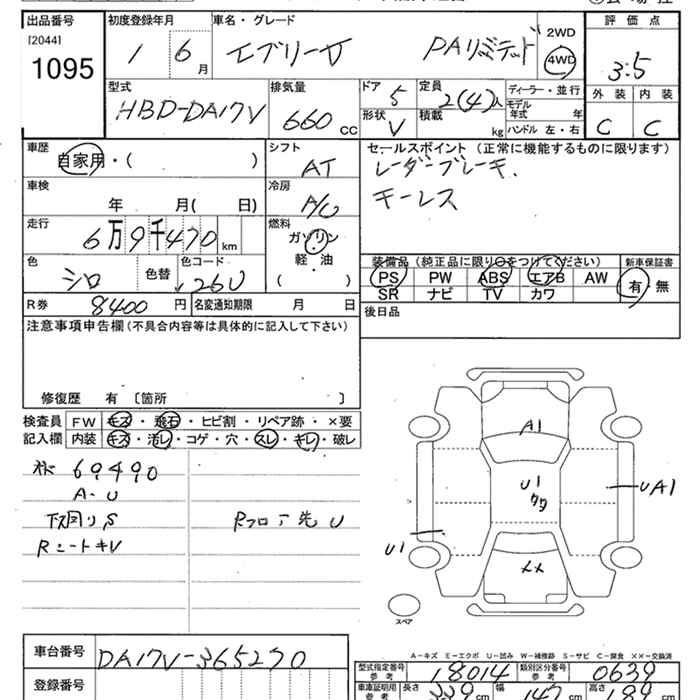 出品番号 初度登録年月 車名・グレード 2WD 評価点
[2044] 1 6月 エブリーV PAリミテッド 4WD 3.5
1095
型式 排気量 ドア 5 定員 2(4)人 ディーラー・並行 外装 内装
HBD-DA17V 660 CC 形状 V 積載 kg モデル年式 年 C C
ハンドル 左・右
車歴 シフト セールスポイント (正常に機能するものに限ります)
自家用・( ) AT レーダーブレーキ.
車検 冷房 キーレス
年 月( 日) A/C
走行 燃料
6万9千470km ガソリン 装備品(純正品に限り○をつけてください) 新車保証書
色 色替 色コード 軽・油 PS PW ABS エアB AW 有・無
シロ 26U ( ) SR ナビ TV カワ
R券 8400円 名変通知期限 月 日 後日品
注意事項申告欄(不具合内容等は具体的に記入して下さい)
修復歴 有 〔箇所 〕
検査員 FW キズ・飛石・ヒビ割・リペア跡・×要
記入欄 内装 キズ・汚レ・コゲ・穴・スレ・キレ・破レ
69490
A・U
下回りS
先U
Rシートキレ
A1
U1
UA1
U1
スペア
A-キズ E-エクボ U-凹み W-補修跡 S-サビ C-腐食 ××-交換済
車台番号 DA17V-365270
型式指定番号 参考 18014 類別区分番号 参考 0639
登録番号
車庫証明用 参考 長さ 339cm 幅 147cm 高さ 189cm